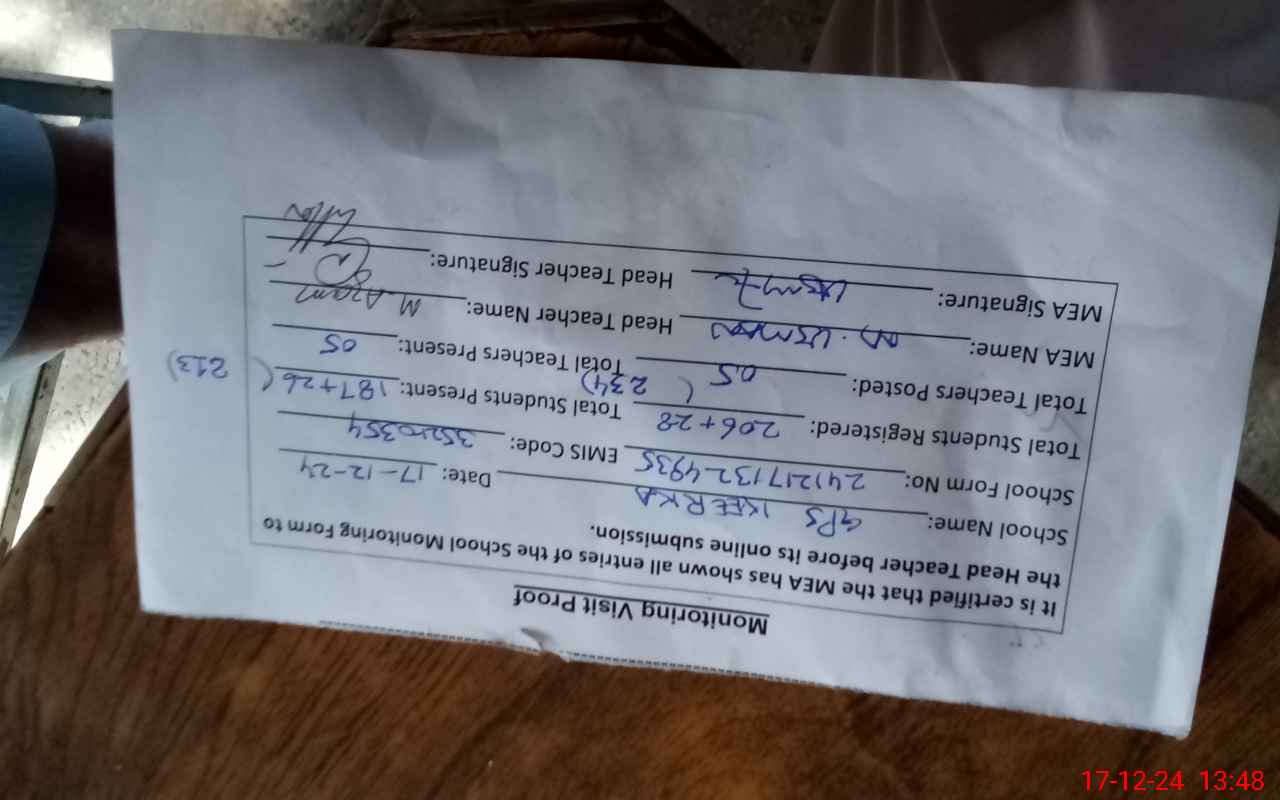 Monitoring Visit Proof
It is certified that the MEA has shown all entries of the School Monitoring Form to
the Head Teacher before its online submission.
School Name: GPS KEERKA Date: 17-12-24
School Form No: 2412171324935 EMIS Code: 35210354
Total Students Registered: 206+28 (234) Total Students Present: 187+26 (213)
Total Teachers Posted: 05 Total Teachers Present: 05
MEA Name: M. USMAN Head Teacher Name: M. Azam
MEA Signature: Head Teacher Signature:
17-12-24 13:48